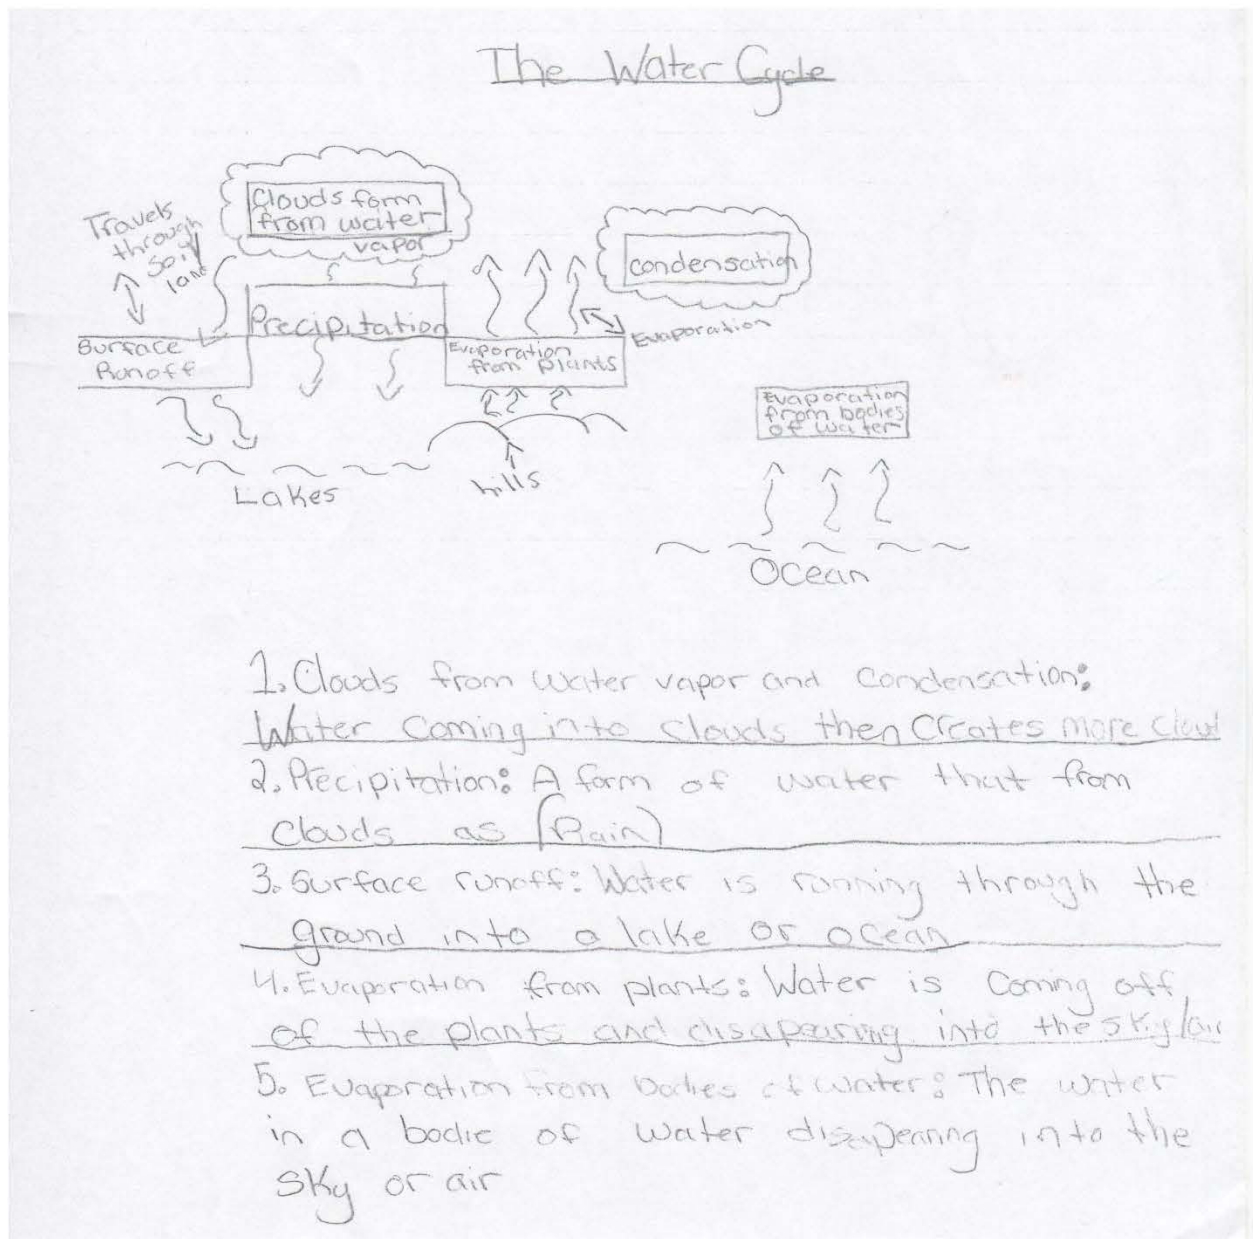 The Water Cycle
Clouds form
from water
vapor
Travels
through
soil/
land
condensation
Precipitation
Evaporation
Surface
Runoff
Evaporation
from plants
Evaporation
from bodies
of water
Lakes
hills
Ocean
1. Clouds from water vapor and condensation:
Water Coming into clouds then Creates more Cloud
2. Precipitation: A form of water that from
Clouds as (Rain)
3. Surface runoff: Water is running through the
ground into a lake or ocean
4. Evaporation from plants: Water is Coming off
of the plants and disapearing into the sky/air
5. Evaporation from bodies of water: The water
in a bodie of water disapearing into the
sky or air